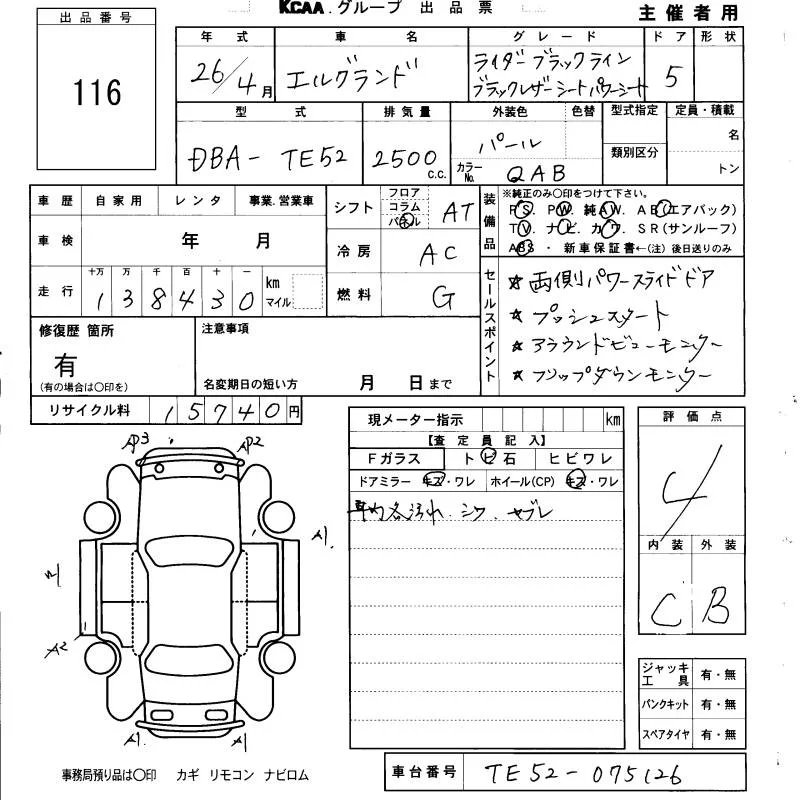 KCAA.グループ 出品票
主催者用
出品番号
116
年式 車名 グレード ドア 形状
26/4月 エルグランド ライダーブラックライン
ブラックレザーシートパワーシート 5
型式 排気量 外装色 色替 型式指定 定員・積載
DBA- TE52 2500 c.c. パール 名
類別区分
カラーNo. QAB トン
車歴 自家用 レンタ 事業.営業車
車検 年 月
走行 十万 万 千 百 十 一
138430 km マイル
シフト フロア コラム パネル AT
冷房 AC
燃料 G
装備品 ※純正のみ〇印をつけて下さい。
PS. PW. 純AW. AB(エアバック)
TV. ナビ. カワ. SR(サンルーフ)
ABS ・ 新車保証書←(注) 後日送りのみ
セールスポイント
☆ 両側パワースライドドア
☆ プッシュスタート
☆ アラウンドビューモニター
☆ フリップダウンモニター
修復歴 箇所
有
(有の場合は〇印を)
注意事項
名変期日の短い方 月 日まで
リサイクル料 15740円
現メーター指示 km
【査定員記入】
Fガラス トビ石 ヒビワレ
ドアミラー キズ・ワレ ホイール(CP) キズ・ワレ
車内各汚れ.シワ.ヤブレ
評価点
4
内装 外装
C B
AP3 AP2
A1.
A2
A1. A1
ジャッキ 工具 有・無
パンクキット 有・無
スペアタイヤ 有・無
事務局預り品は〇印 カギ リモコン ナビロム
車台番号 TE52-075126